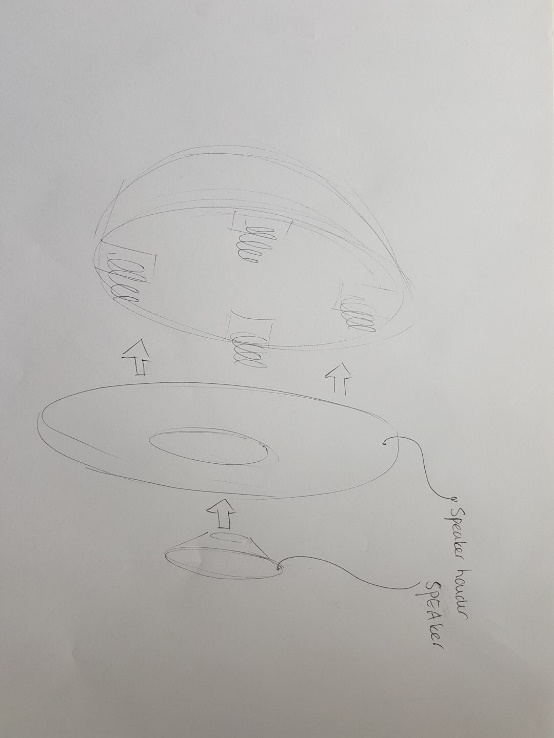 Speaker houder
SPEAker